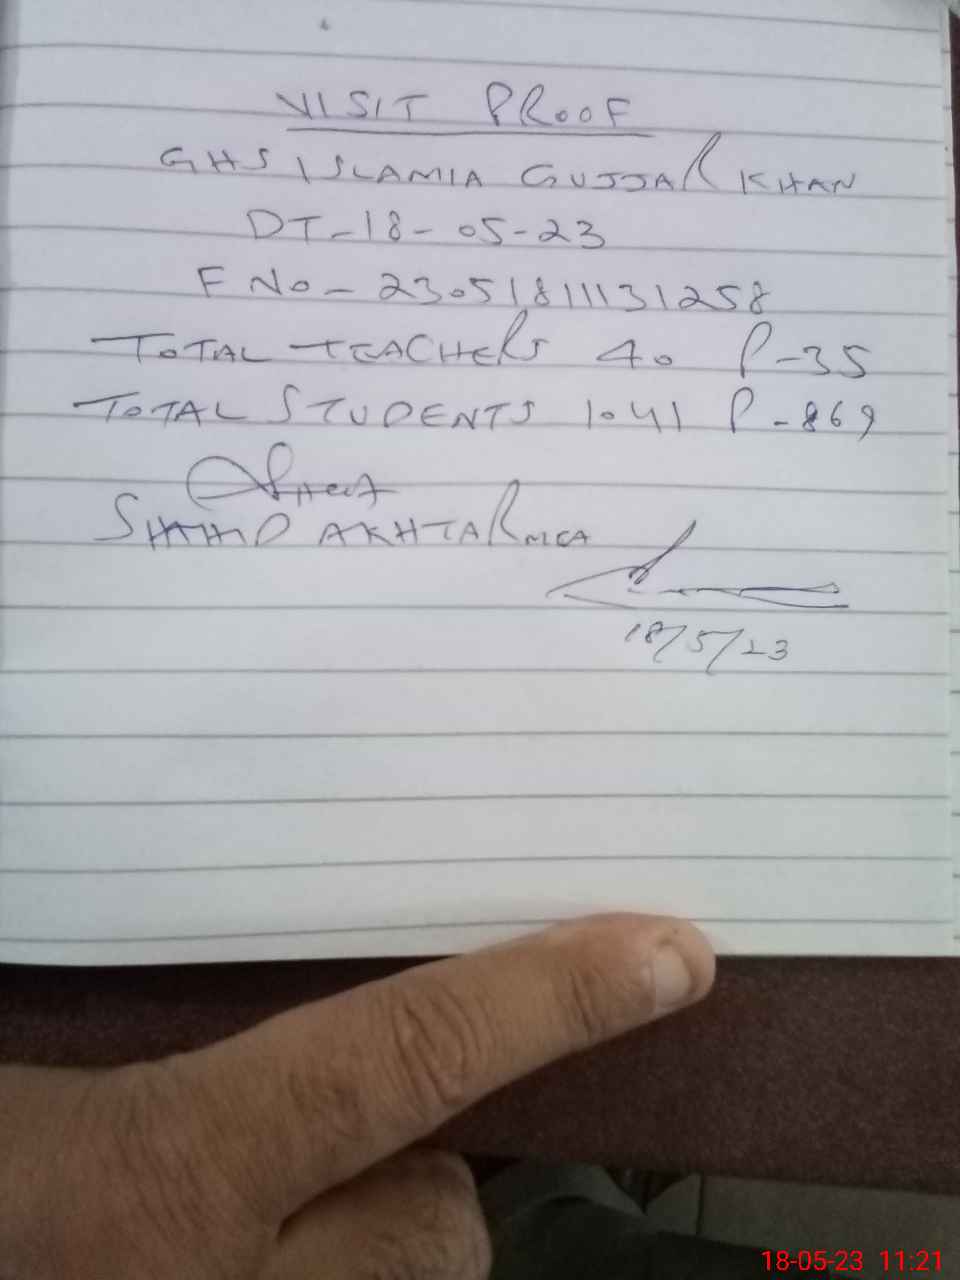 VISIT PROOF
GHS ISLAMIA GUJJAR KHAN
DT-18-05-23
F NO- 23051811131258
TOTAL TEACHERS 40 P-35
TOTAL STUDENTS 1041 P-869
SHAHID AKHTAR MEA
18/5/23
18-05-23 11:21